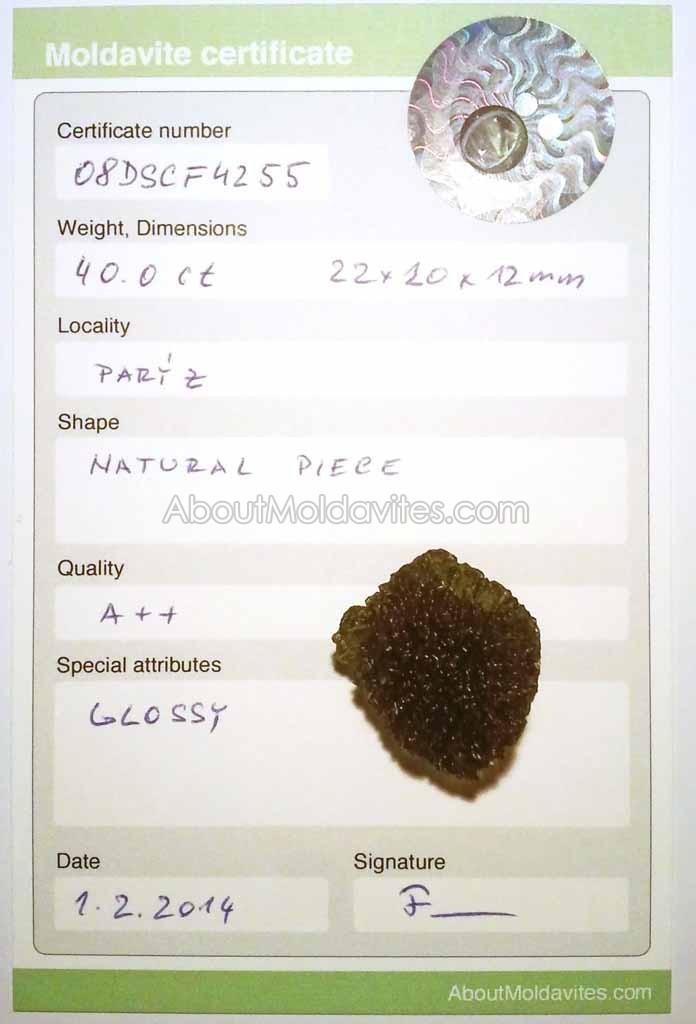 Moldavite certificate
Certificate number
08DSCF4255
Weight, Dimensions
40.0 ct 22x20x12mm
Locality
PARÍZ
Shape
NATURAL PIECE
AboutMoldavites.com
Quality
A++
Special attributes
GLOSSY
Date Signature
1.2.2014 F
AboutMoldavites.com